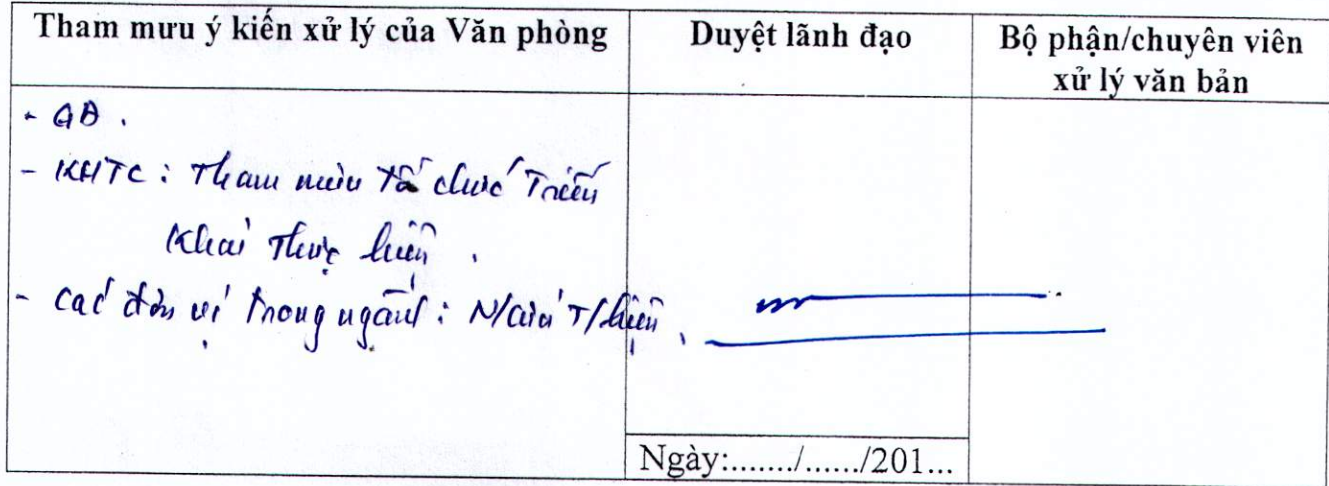 Tham mưu ý kiến xử lý của Văn phòng
Duyệt lãnh đạo
Bộ phận/chuyên viên
xử lý văn bản
- GĐ.
- KHTC: Tham mưu tổ chức Triển
Khai Thực hiện.
- Các đơn vị Trong ngành: N/cứu T/hiện.
Ngày:......./....../201...